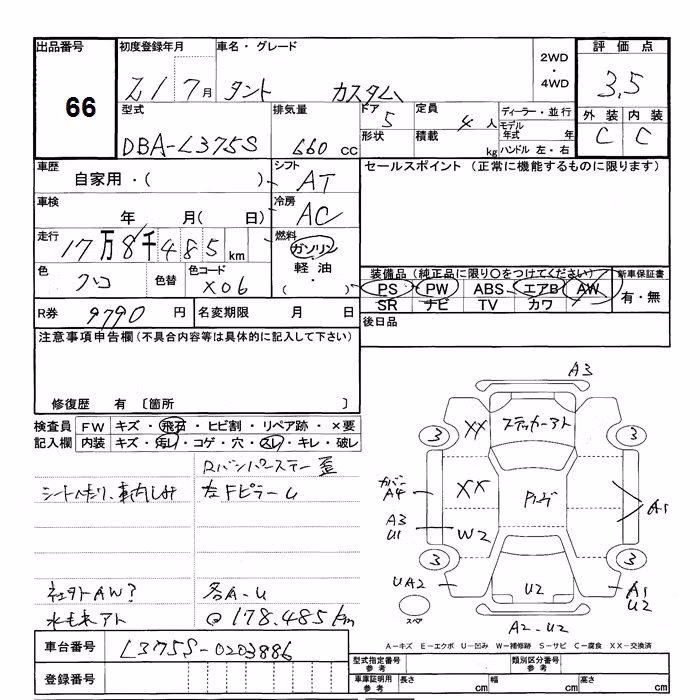 出品番号 初度登録年月 車名・グレード 2WD・4WD 評価点
66
21 7月 タント カスタム 3,5
型式 排気量 ドア 5 定員 4 人 ディーラー・並行 外装 内装
DBA-L375S 660 cc 形状 積載 kg モデル年式 年 C C
ハンドル 左・右
車歴 自家用・( ) シフト AT
セールスポイント (正常に機能するものに限ります)
車検 年 月( 日) 冷房 AC
走行 17万8千485km 燃料 ガソリン
軽油・( )
色 クロ 色替 色コード X06
装備品 (純正品に限り○をつけてください) 新車保証書
PS PW ABS エアB AW 有・無
SR ナビ TV カワ
R券 9790 円 名変期限 月 日
後日品
注意事項申告欄(不具合内容等は具体的に記入して下さい)
修復歴 有 〔箇所 〕
検査員 FW キズ・飛石・ヒビ割・リペア跡・×要
記入欄 内装 キズ・汚レ・コゲ・穴・スレ・キレ・破レ
歪
左FピラーU
社外AW?
各A-U
@178.485km
車台番号 L375S-0203886
登録番号
A3
XX ステッカーアト
3 3
カバー A4
XX
A1
A3
U1
W2
3 3
UA2
U2
A1
U2
スペア
A2-U2
A-キズ E-エクボ U-凹み W-補修跡 S-サビ C-腐食 XX-交換済
型式指定番号 参考 類別区分番号 参考
車庫証明用 参考 長さ cm 幅 cm 高さ cm